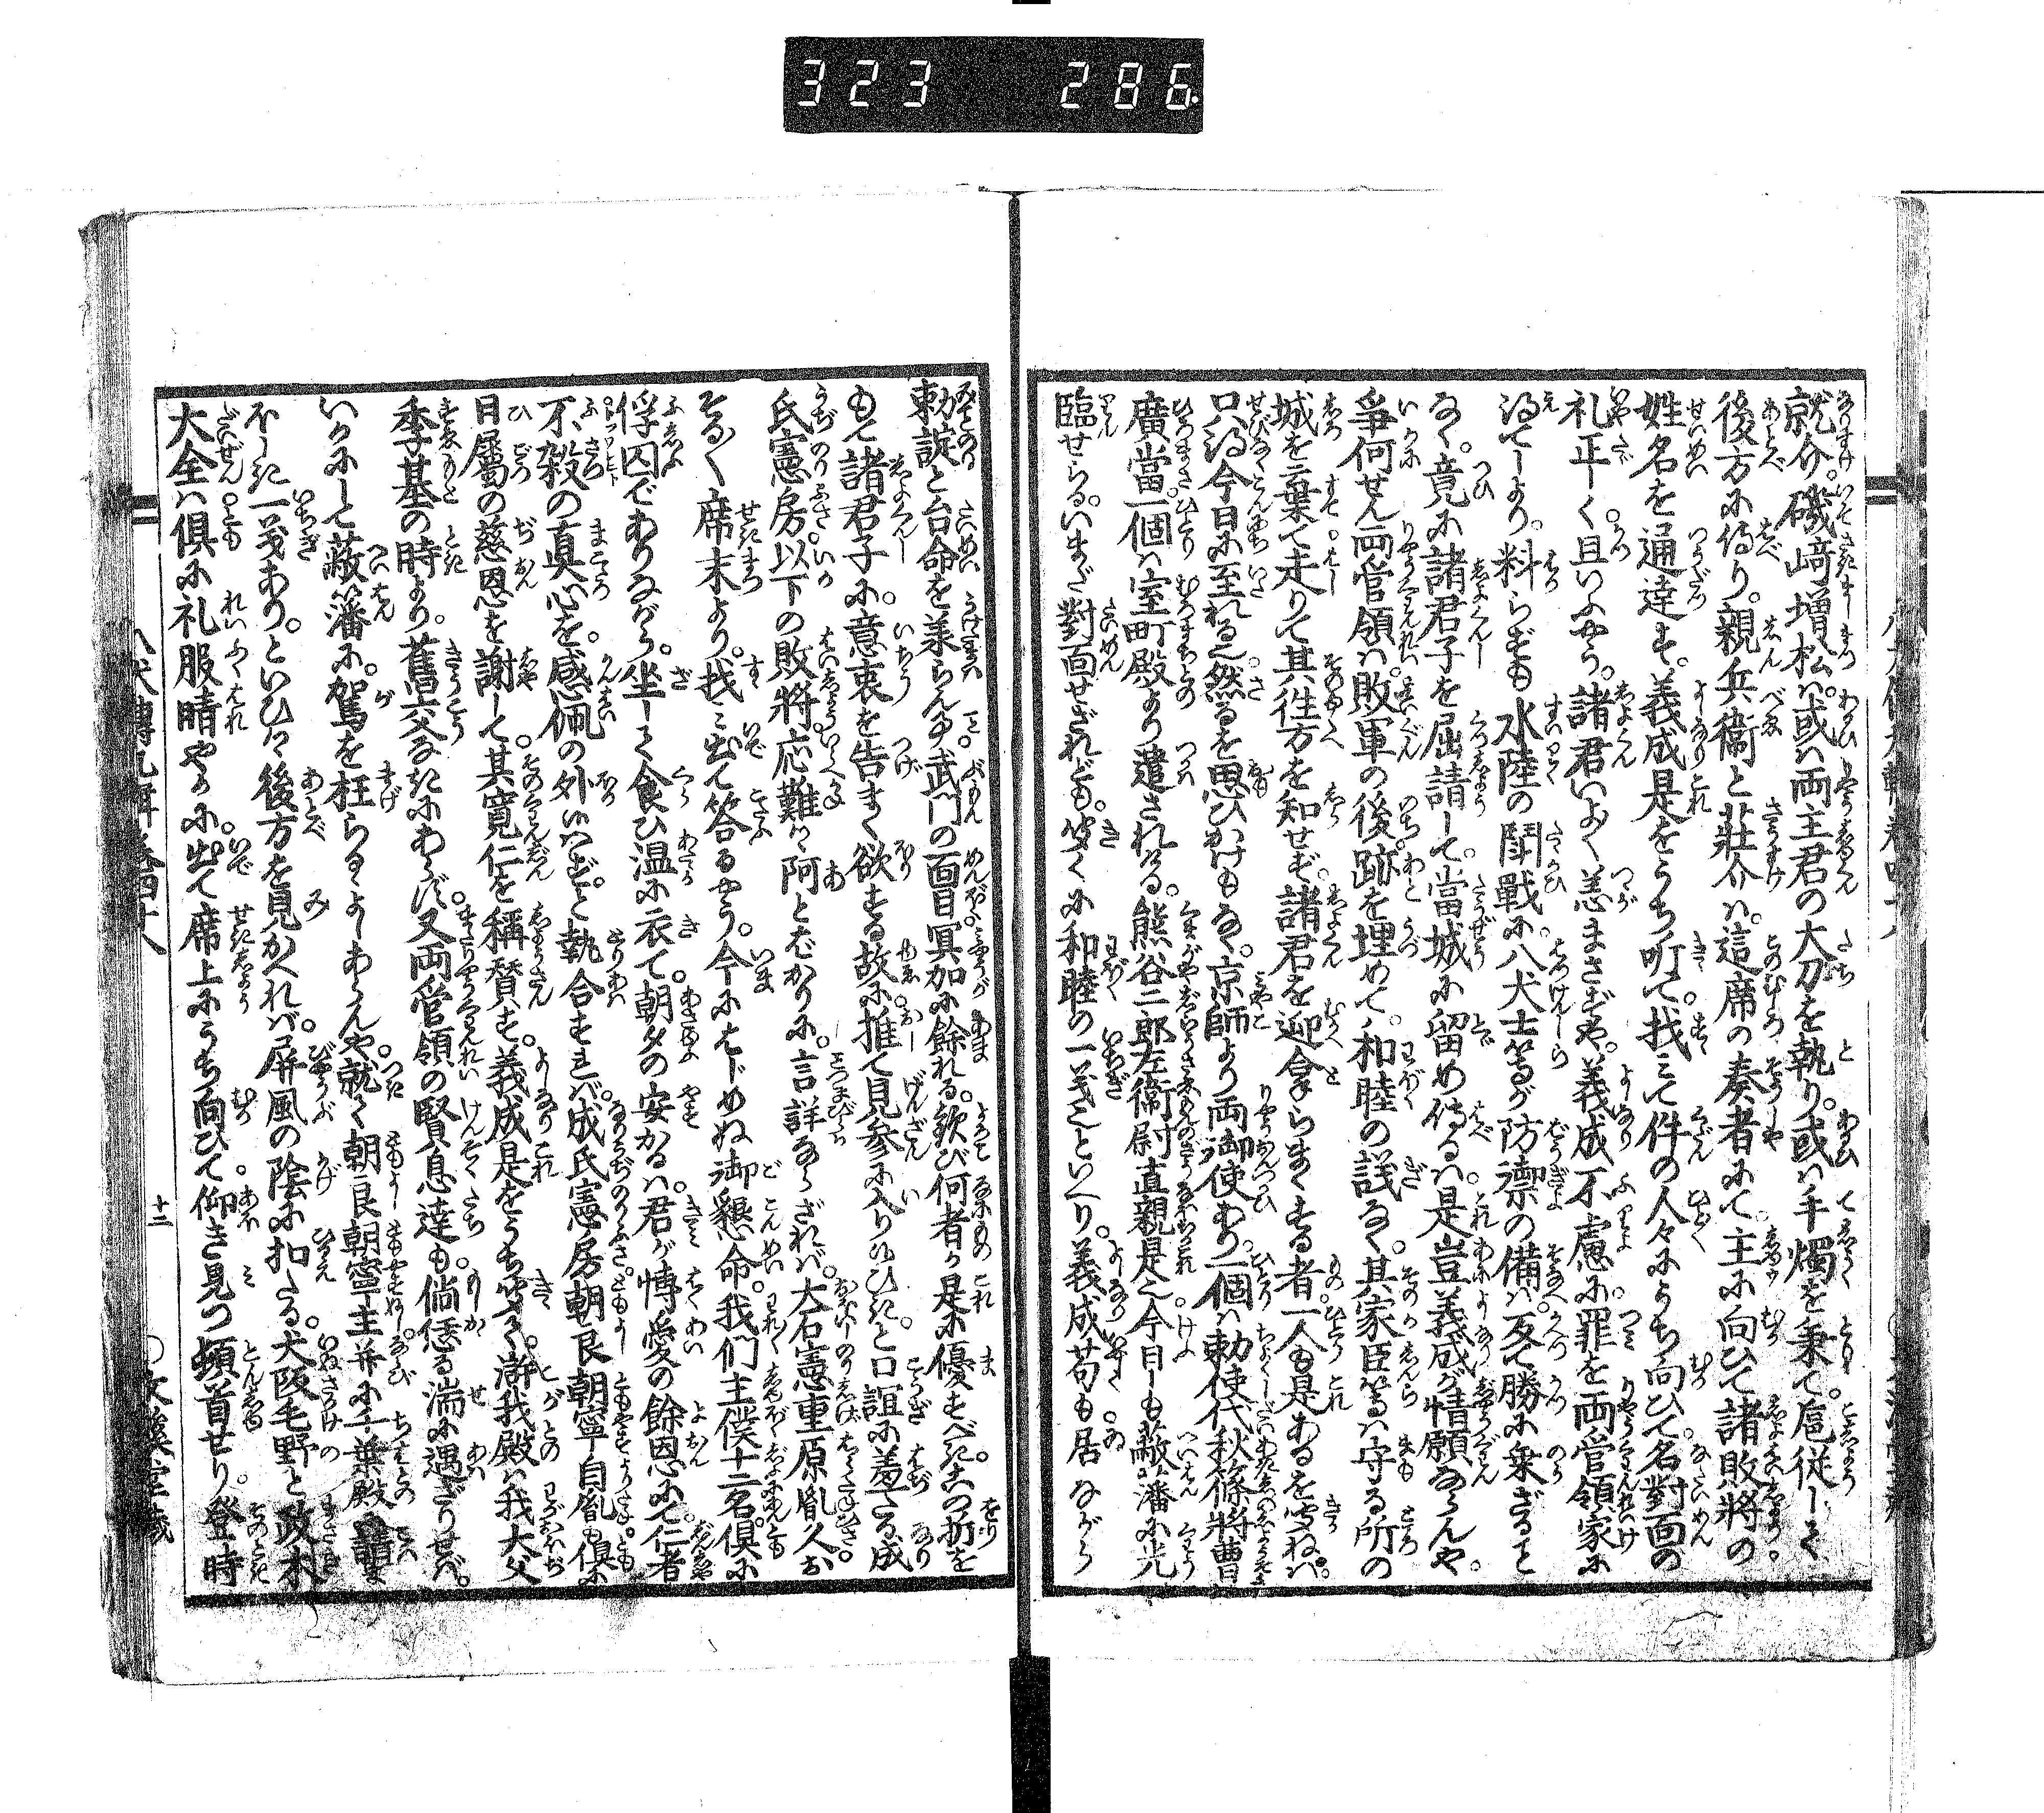 323 286
就介。磯﨑増松ハ。或ハ両主君の大刀を執り。或ハ手燭を秉て扈従しく
後方に侍り。親兵衞と莊介ハ。這席の奏者にて。主に向ひて諸敗將の
姓名を通達す。義成是をうち听て。找みて件の人々にうち向ひて名對面の
礼正しく。且いふやう。諸君いよゝ恙まさずや。義成不慮に罪を両管領家に
得てしより。料らずも水陸の鬪戰に。八犬士等が防禦の備ハ。反て勝に乗ざること
なく。竟に諸君子を屈請して。當城に留め侍るハ。是豈義成が情願ならんや。
争何せん両管領ハ。敗軍の後。跡を埋めて。和睦の議なく。其家臣等ハ守る所の
城を棄て走りて其徃方を知せず。諸君を迎拿らまく する者一人も是あるを聞ねバ。
只得今日に至れる也。然るを思ひかけもなく。京師より両御使あり。一個ハ勅使代秋篠將曹
廣當。一個ハ室町殿より遣されける。熊谷二郎左衞門尉直親是也。今日しも敝藩に光
臨せらる。いまだ對面せざれども。聞くに和睦の一義といへり。義成苟も居ながら
勅諚と台命を羕らん事。武門の面目冥加に餘れる。歓び何者か是に優すべき。この折を
もて諸君子に。意衷を告まく欲する故に推て見参に入りハひきと口誼に羞たる成
氏憲房以下の敗將。応難て阿とばかりに。言詳ならざれバ。大石憲重原胤久お
そるく席末より。找ミ出て答るやう。今にはじめぬ御懇命。我們主僕十二名。倶に
俘囚でありながら。坐しく食ひ温に衣て。朝夕の安かるハ。君が博愛の餘恩にて。仁者
不殺の真心を。感佩の外ハずと執合すれバ。成氏憲房朝良朝寧自胤も倶に
日屬の慈恩を謝して。其寛仁を稱賛す。義成是をうち聞て。滸我殿ハ我大父
季基の時より。舊交なきにあらず。又両管領の賢息達も。倘恁る湍に遇ざりせば。
いかにして敝藩に。駕を枉らるゝよしあらんや。就て朝良朝寧主并に千葉殿に請まく
ほしき一義あり。といひつゝ後方を見かへれバ。屏風の陰に扣たる。犬阪毛野と政木
大全ハ倶に礼服晴やかに。出て席上にうち向ひて。仰き見つ頓首せり。登時
八犬傳九輯卷四十八
十二
文溪堂藏